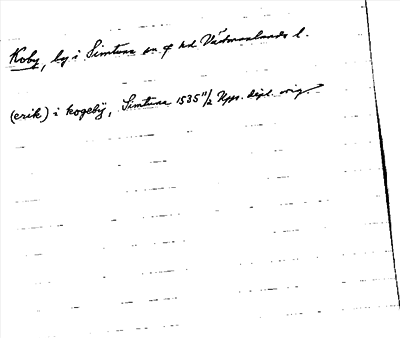 Koby, by i Simtuna sn o hd Västmanlands l.
(erik) i kogebÿ, Simtuna 1535 11/2 Upps. dipl. orig.